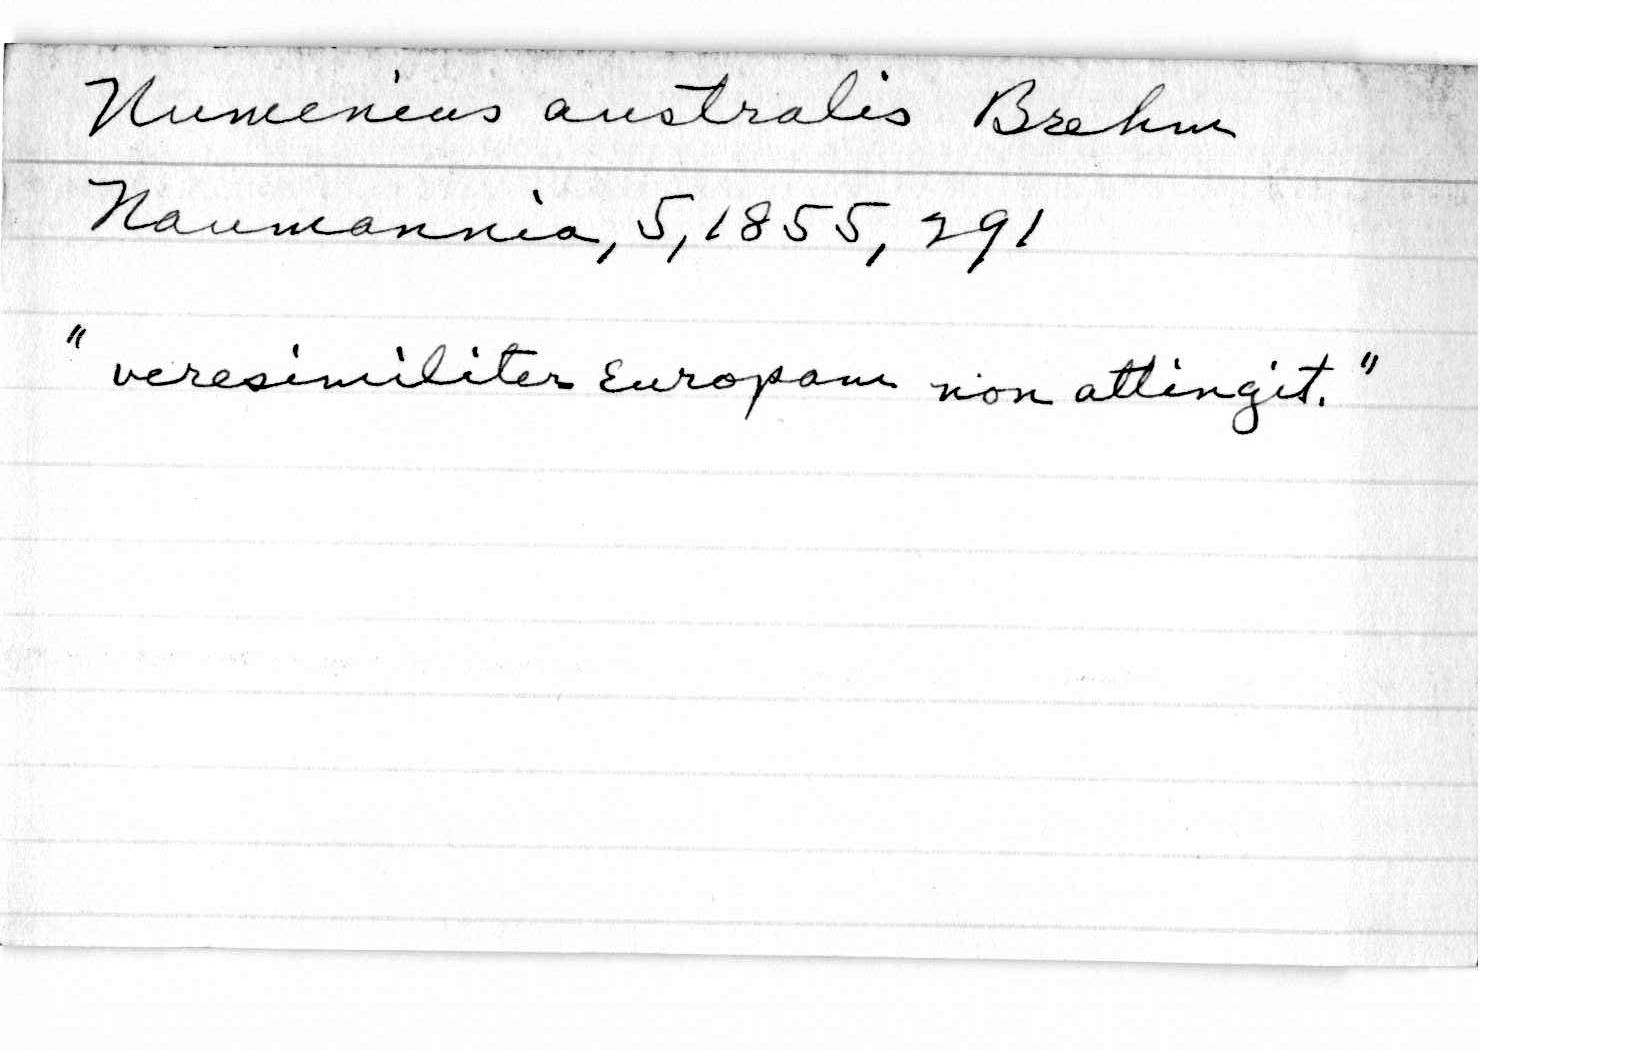 Numenius australis Brehm
Naumannia, 5, 1855, 291
"veresimiliter Europam non attingit."